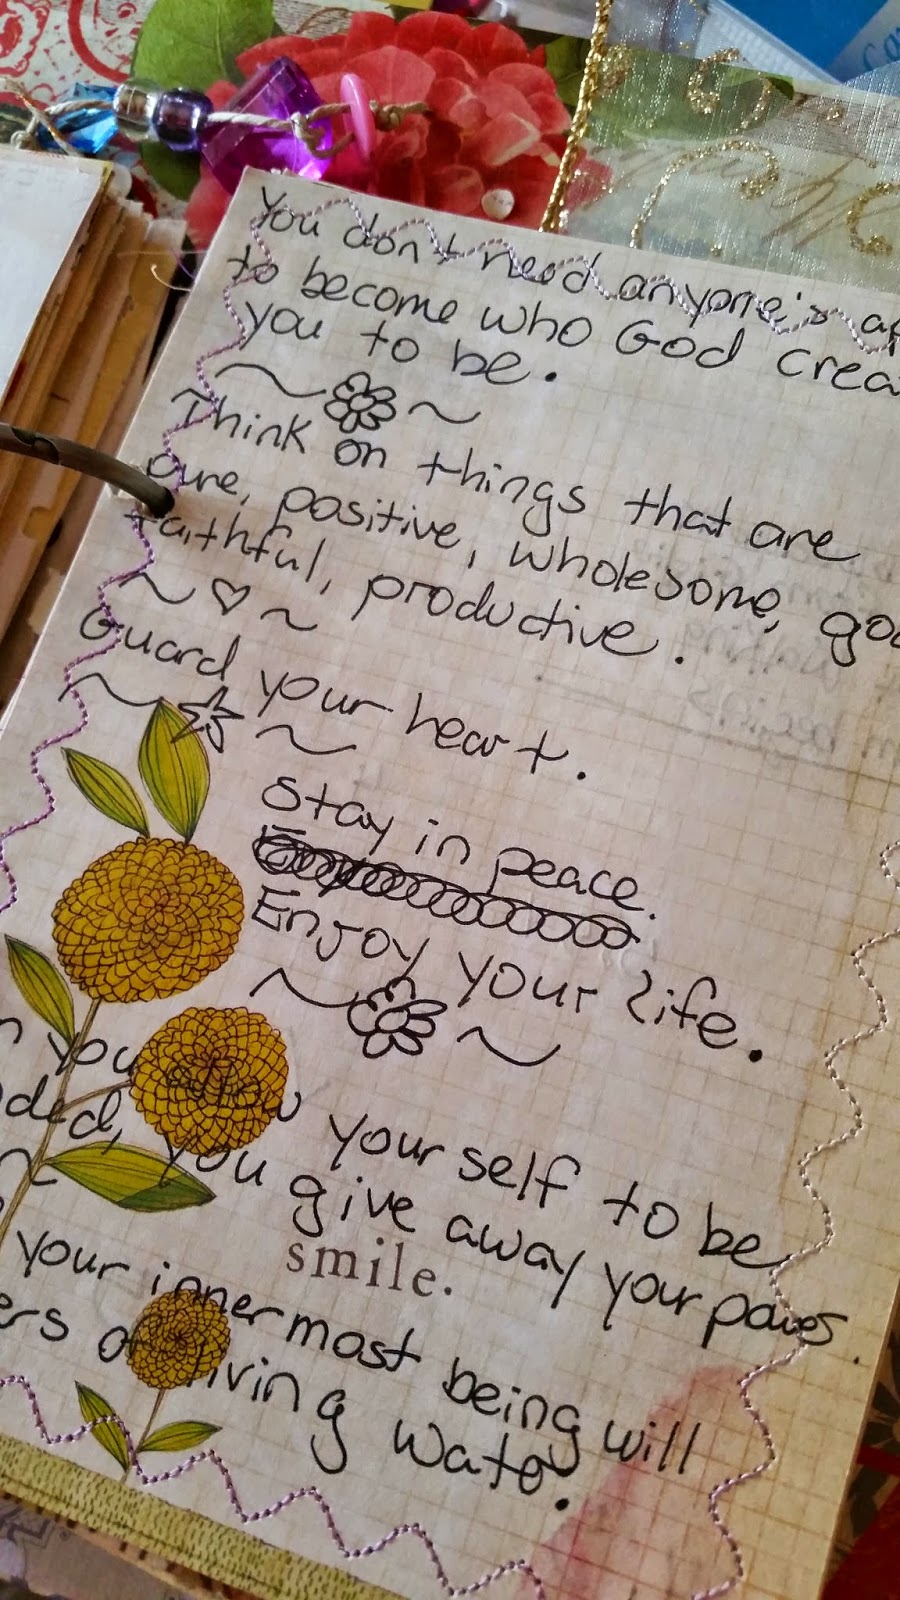 You don't need anyone's
to become who God
you to be.
Think on things that are
pure, positive, wholesome,
faithful, productive.
Guard your heart.
Stay in peace.
Enjoy your life.
you allow your self to be
you give away your power.
smile.
your innermost being will
of living water.